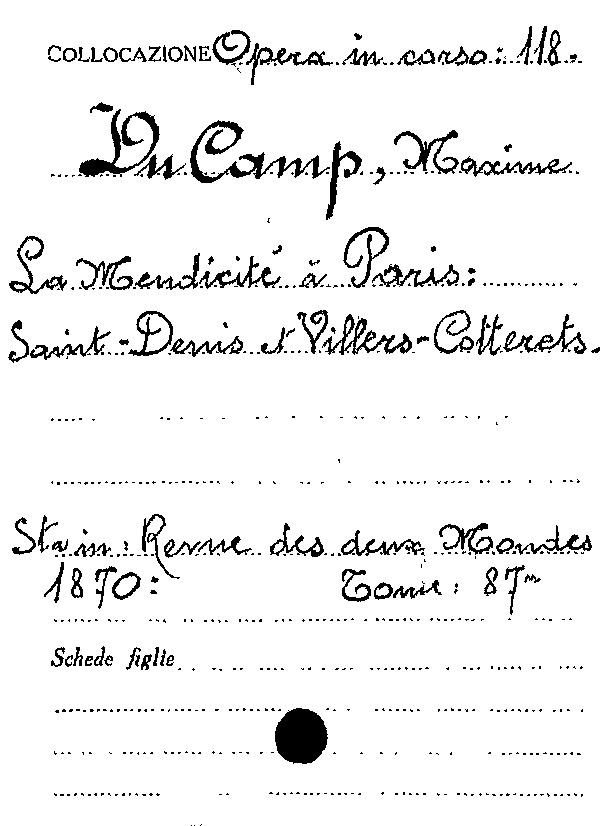 COLLOCAZIONE Opera in corso: 118.
Du Camp, Maxime
La Mendicité à Paris:
Saint-Denis et Villers-Cotterets.
Sta in: Revue des deux Mondes
1870: Tome: 87m
Schede figlie